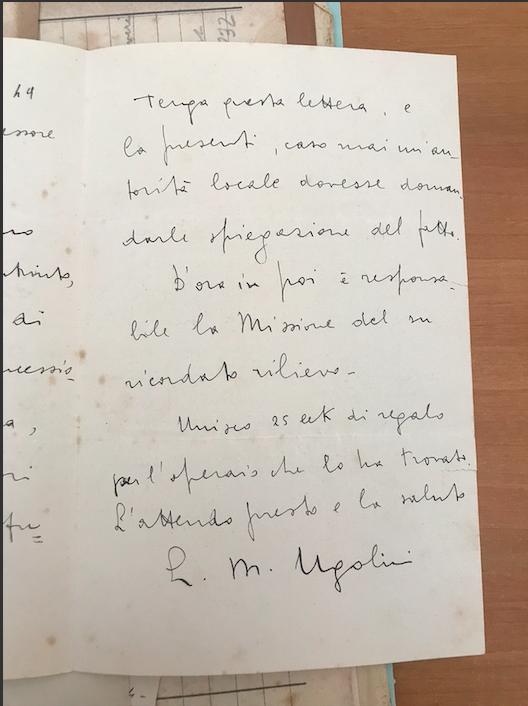 h4
essore
Tenga questa lettera, e
la presenti, caso mai un'au-
torità locale dovesse doman-
darle spiegazione del fatto.
D'ora in poi è responsa-
bile la Missione del su
ricordato rilievo-
Unisco 25 eek di regalo
per l'operaio che lo ha trovato.
L'attendo presto e la saluto
L. M. Ugolini
di